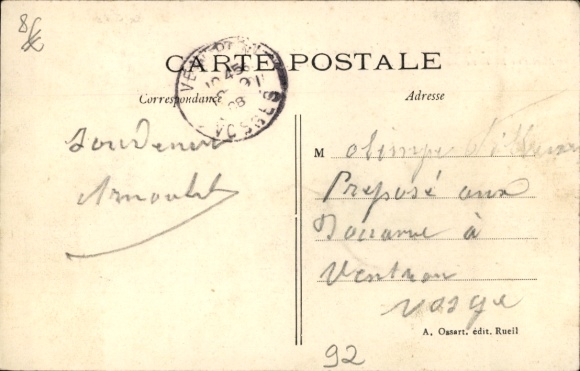 CARTE POSTALE
Correspondance
Adresse
VOSGES
Souvenir
Arnould
M olimpe
Preposé aux
Douanne à
Ventron
Vosge
A. Ossart. édit. Rueil
92